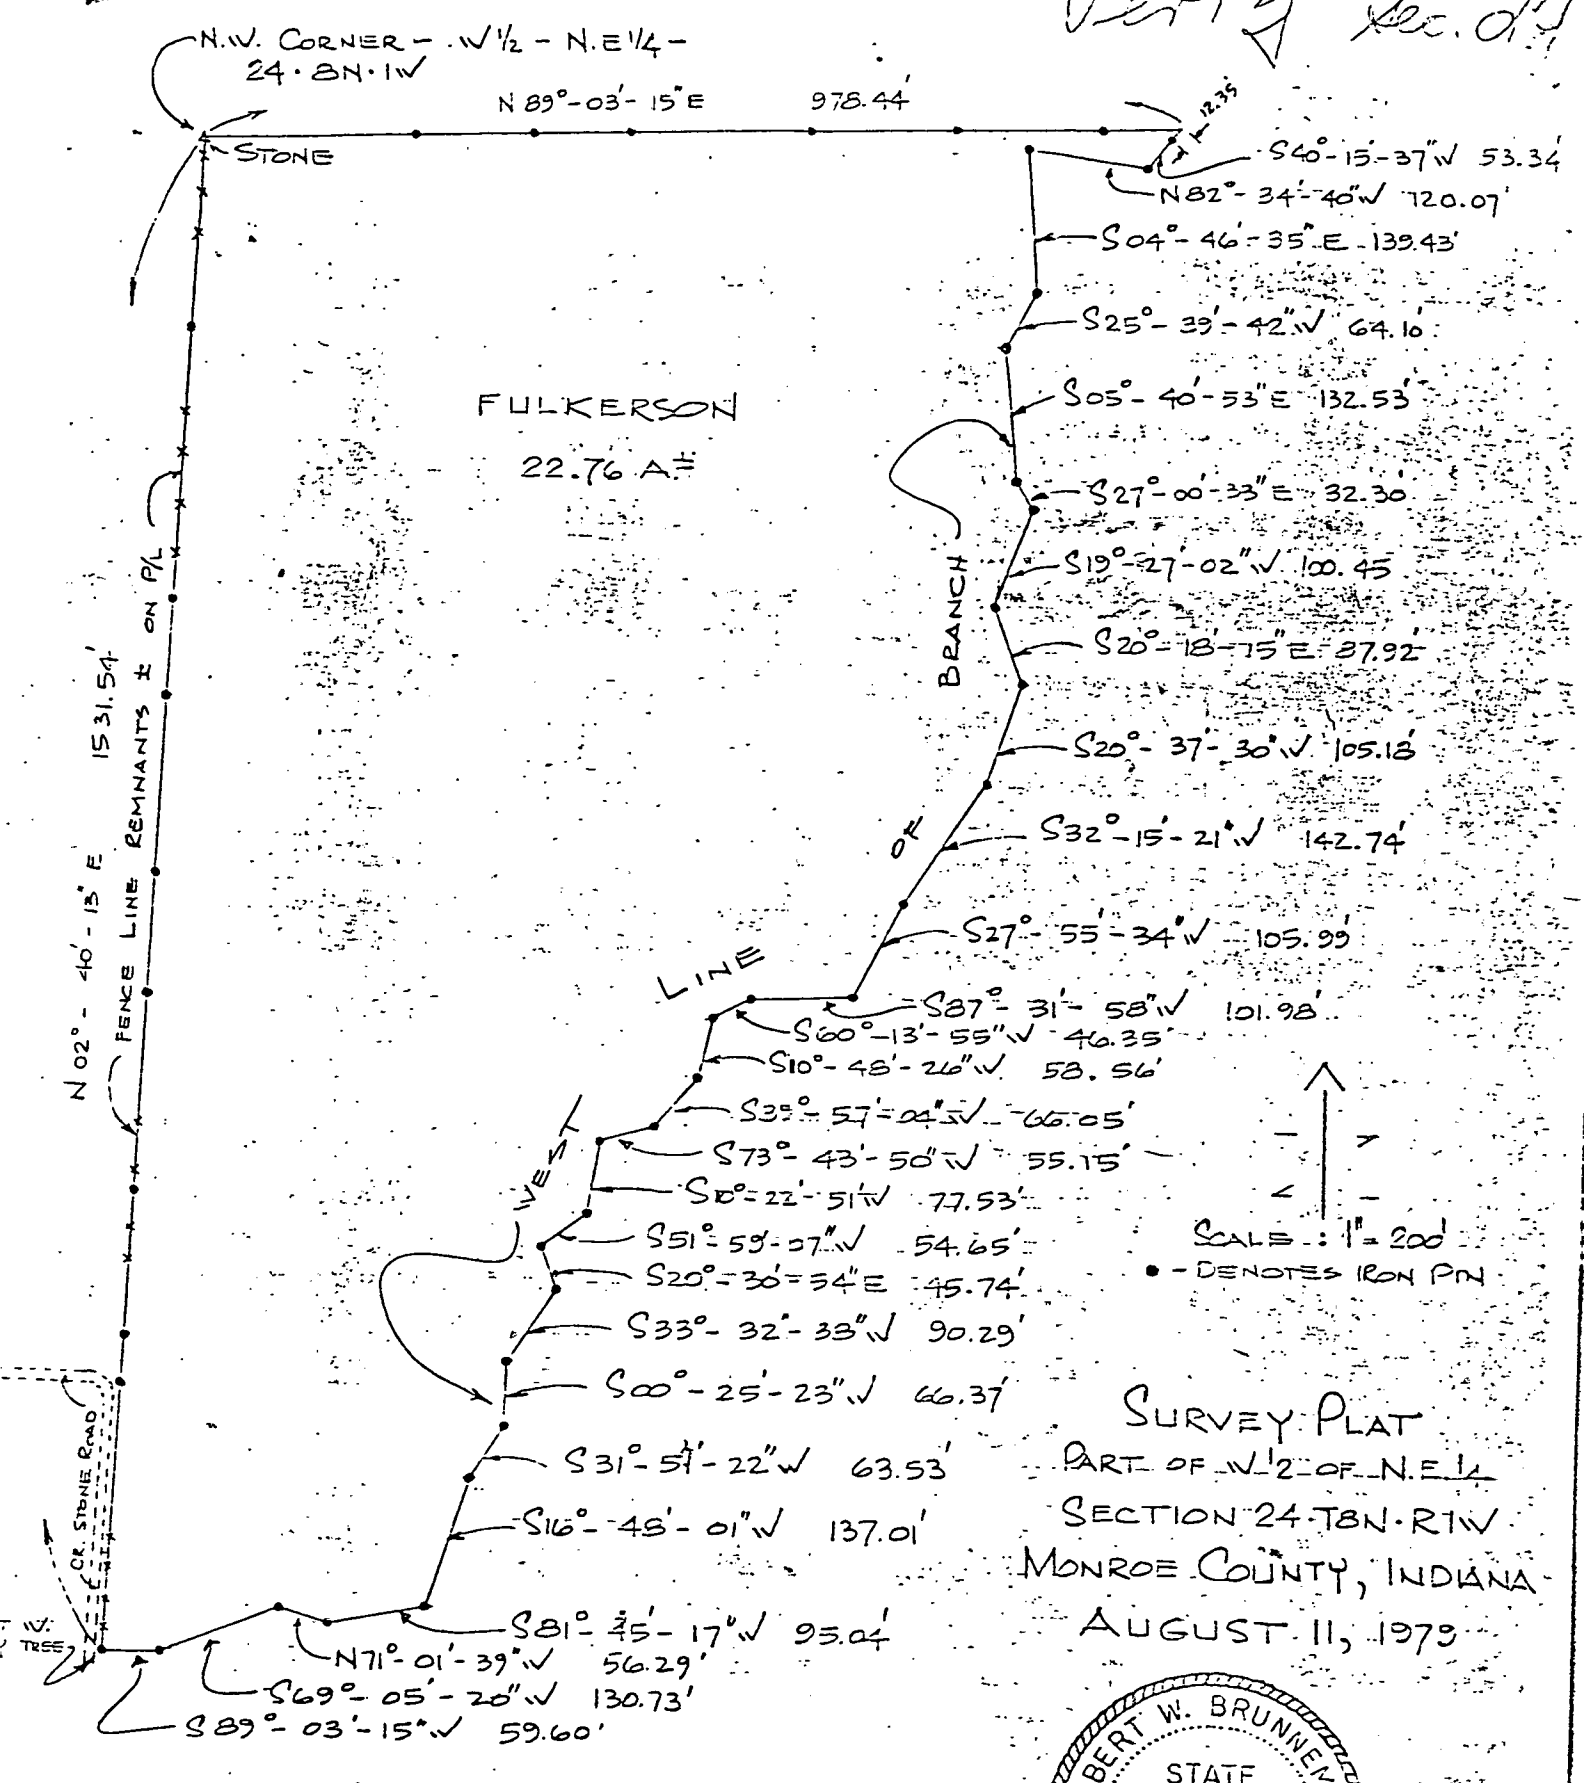 Sec. 24
N.W. CORNER - W 1/2 - N.E 1/4 -
24 · 8N · 1W
N 89°-03'-15" E 978.44'
12.35'
STONE
S40°-15'-37"W 53.34'
N82°-34'-40"W 120.07'
S04°-46'-35" E 139.43'
S25°-39'-42"W 64.10
S05°-40'-53"E 132.53'
FULKERSON
22.76 A.±
S27°-00'-33"E 32.30
S19°-27'-02"W 100.45
S20°-18'-15"E 87.92'
S20°-37'-30"W 105.18'
S32°-15'-21"W 142.74'
S27°-55'-34"W 105.99'
S87°-31'-58"W 101.98'
S60°-13'-55"W 46.35'
S10°-48'-26"W 58.56'
S39°-57'-04"W 66.05'
S73°-43'-50"W 55.15'
S10°-22'-51"W 77.53'
S51°-59'-07"W 54.65'
S20°-30'-54"E 45.74'
S33°-32'-33"W 90.29'
S00°-25'-23"W 66.37'
S31°- -22"W 63.53'
S16°-48'-01"W 137.01'
S81°- -17"W 95.04'
N71°-01'-39"W 56.29'
S69°-05'-20"W 130.73'
S89°-03'-15"W 59.60'
WEST LINE OF BRANCH
N 02°-40'-13" E 1531.54'
FENCE LINE REMNANTS ± ON P/L
CR. STONE ROAD
W.
TREE
SCALE : 1" = 200'
● - DENOTES IRON PIN
SURVEY PLAT
PART OF W 1/2 OF N.E 1/4
SECTION 24·T8N·R1W
MONROE COUNTY, INDIANA
AUGUST 11, 1979
BERT W. BRUNNEM
STATE